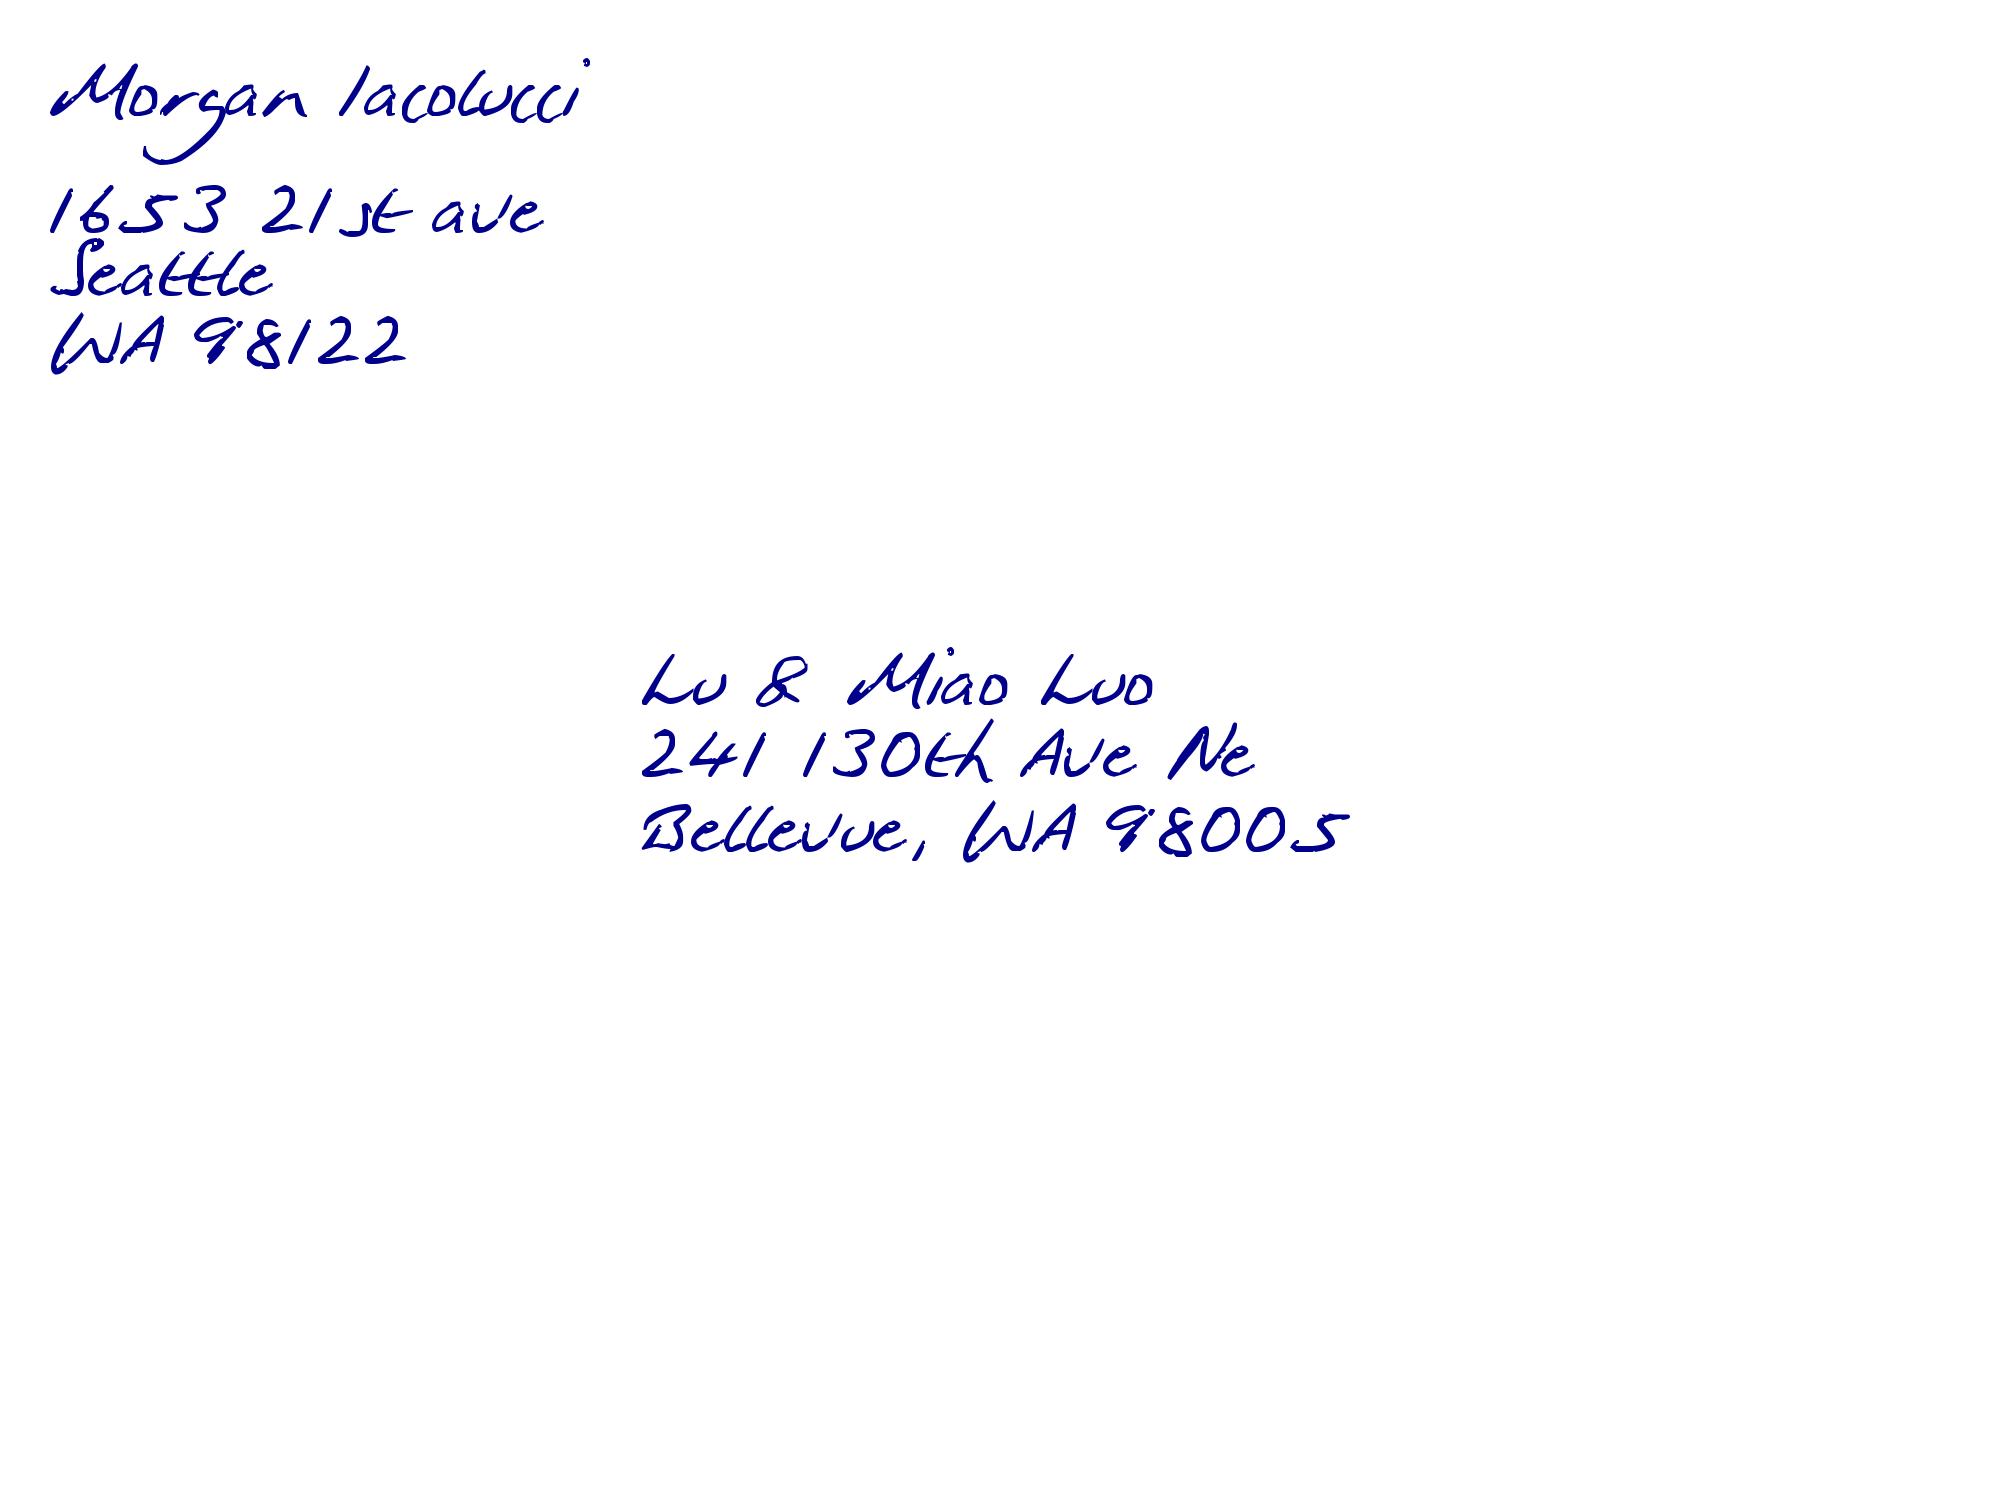 Morgan Iacolucci
1653 21st ave
Seattle
WA 98122
Lu & Miao Luo
241 130th Ave Ne
Bellevue, WA 98005